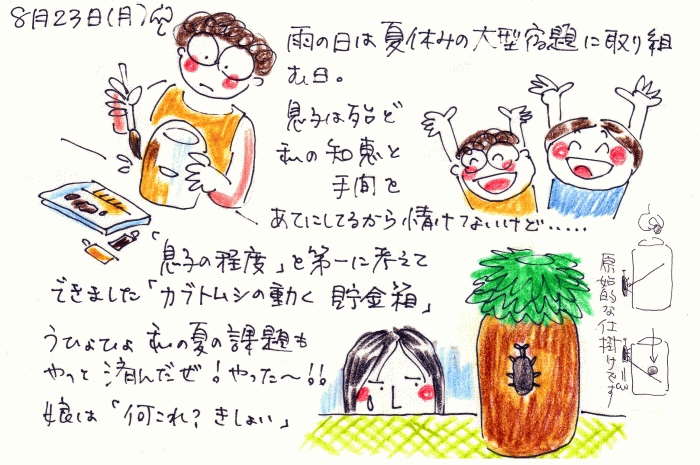 8月23日(月)
雨の日は夏休みの大型宿題に取り組
む日。
息子は殆ど
私の知恵と
手間を
あてにしてるから情けないけど.....
「息子の程度」を第一に考えて
できました「カブトムシの動く貯金箱」
うひょひょ 私の夏の課題も
やっと済んだぜ!やった〜!!
娘は「何これ?きしょい」
原始的な仕掛けです